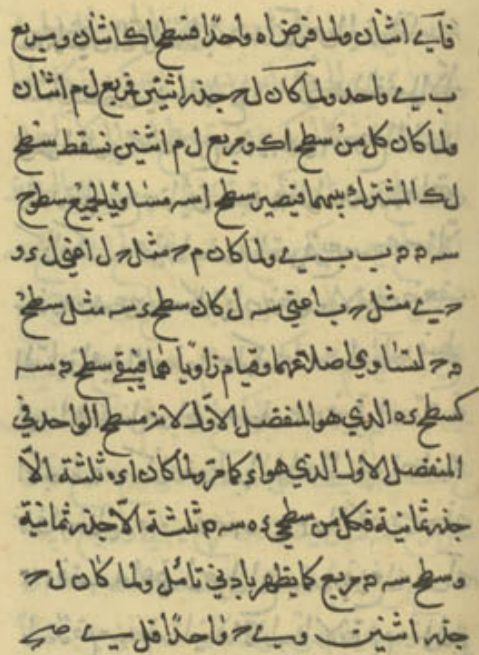 فاىے اثنان ولما فرض اه واحدًا فسطح اك اثنان ومربع
ب ىے واحد ولما كان ل ح جذر اثنين فمربع ل م اثنان
ولما كان كل من سطح اك ومربع ل م اثنين نسقط سطح
ل ك المشترك بينهما فيصير سطح ا سه مساويا لجميع سطوح
سه م ب ىے ولما كان م ح مثل ح ل اعني ل ء و
ح ىے مثل ح ب اعني سه ل كان سطح ء سه مثل سطح
م ح لتساوي اضلاعهما وقيام زواياهما فيبقى سطح م سه
كسطح ء ه الذي هو المنفصل الاول لانه مسطح الواحد في
المنفصل الاول الذي هو اء كما مر ولما كان اء ثلثة الّا
جذر ثمانية فكل من سطحي ء ه سه م ثلثة الّا جذر ثمانية
وسطح سه م مربع كما يظهر بادني تامّل ولما كان ل ح
جذر اثنين وىے ح واحدًا فل ىے